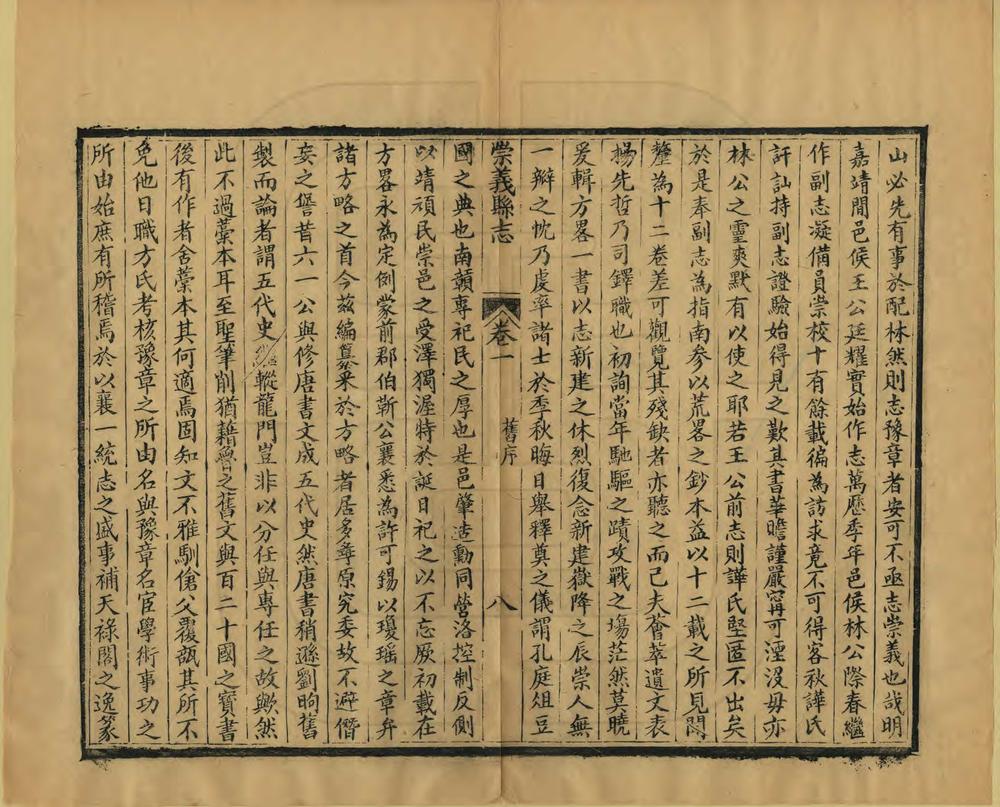 山必先有事於配林然則志豫章者安可不亟志崇義也哉明
嘉靖間邑侯王公廷耀實始作志萬歷季年邑侯林公際春繼
作副志凝備員崇校十有餘載徧為訪求竟不可得客秋譁氏
訐訕持副志證驗始得見之歎其書華瞻謹嚴甯可湮沒毋亦
林公之靈爽默有以使之耶若王公前志則譁氏堅匿不出矣
於是奉副志為指南参以荒畧之鈔本益以十二載之所見聞
釐為十二卷差可觀覽其殘缺者亦聽之而已夫薈萃遺文表
揚先哲乃司鐸職也初詢當年馳驅之蹟攻戰之塲茫然莫曉
爰輯方畧一書以志新建之休烈復念新建嶽降之辰崇人無
一瓣之忱乃虔率諸士於季秋晦日舉釋奠之儀謂孔庭俎豆
崇義縣志 卷一 舊序 八
國之典也南贛專祀民之厚也是邑肇造勳同營洛控制反側
以靖頑民崇邑之受澤獨渥特於誕日祀之以不忘厥初載在
方畧永為定例蒙前郡伯靳公襄悉為許可錫以瓊瑶之章弁
諸方略之首今兹編纂采於方略者居多尋原究委故不避僭
妄之僽昔六一公與修唐書文成五代史然唐書稍遜劉昫舊
製而論者謂五代史 縱龍門豈非以分任與專任之故歟然
此不過藁本耳至聖筆削猶藉魯之舊文與百二十國之寶書
後有作者舍藁本其何適焉固知文不雅馴傖父覆瓿其所不
免他日職方氏考核豫章之所由名與豫章名宦學術事功之
所由始庶有所稽焉於以襄一統志之盛事補天祿閣之逸篆